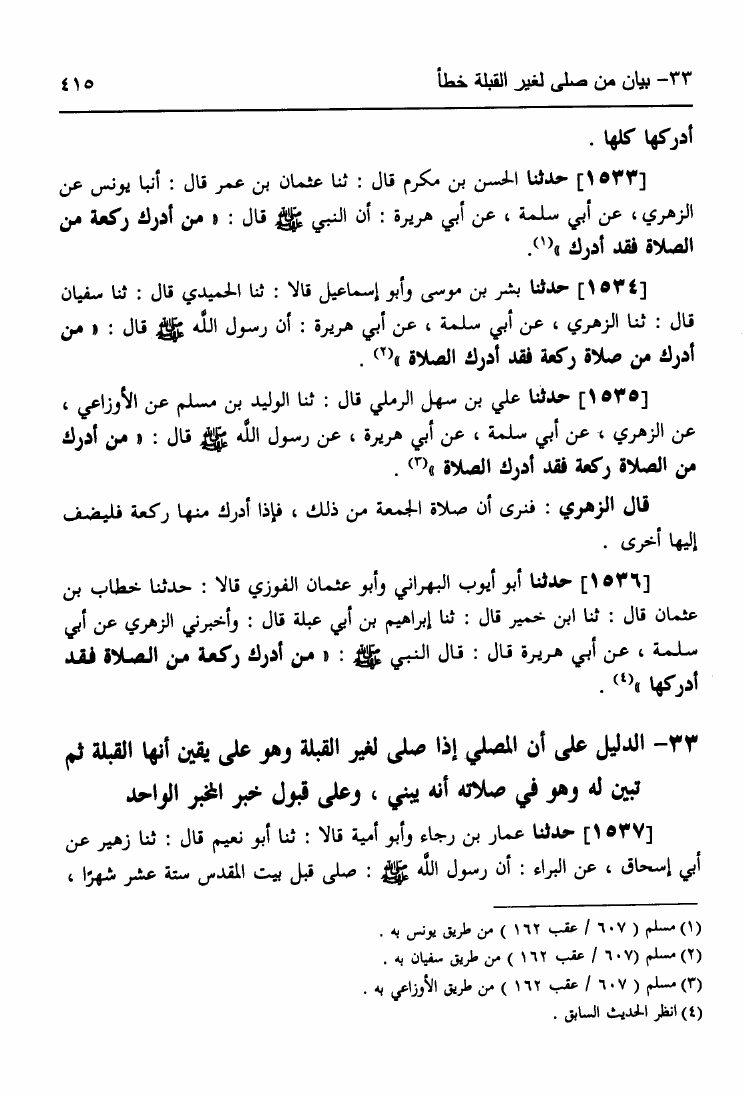 ٣٣- بيان من صلى لغير القبلة خطأ ٤١٥
أدركها كلها .
[١٥٣٣] حدثنا الحسن بن مكرم قال : ثنا عثمان بن عمر قال : أنبا يونس عن
الزهري، عن أبي سلمة ، عن أبي هريرة : أن النبي ﷺ قال : « من أدرك ركعة من
الصلاة فقد أدرك »(١).
[١٥٣٤] حدثنا بشر بن موسى وأبو إسماعيل قالا : ثنا الحميدي قال : ثنا سفيان
قال : ثنا الزهري ، عن أبي سلمة ، عن أبي هريرة : أن رسول اللَّه ﷺ قال : « من
أدرك من صلاة ركعة فقد أدرك الصلاة »(٢) .
[١٥٣٥] حدثنا علي بن سهل الرملي قال : ثنا الوليد بن مسلم عن الأوزاعي ،
عن الزهري ، عن أبي سلمة ، عن أبي هريرة ، عن رسول اللَّه ﷺ قال : « من أدرك
من الصلاة ركعة فقد أدرك الصلاة »(٣) .
قال الزهري : فنرى أن صلاة الجمعة من ذلك ، فإذا أدرك منها ركعة فليضف
إليها أخرى .
[١٥٣٦] حدثنا أبو أيوب البهراني وأبو عثمان الفوزي قالا : حدثنا خطاب بن
عثمان قال : ثنا ابن خمير قال : ثنا إبراهيم بن أبي عبلة قال : وأخبرني الزهري عن أبي
سلمة ، عن أبي هريرة قال : قال النبي ﷺ : « من أدرك ركعة من الصلاة فقد
أدركها »(٤) .
٣٣- الدليل على أن المصلي إذا صلى لغير القبلة وهو على يقين أنها القبلة ثم
تبين له وهو في صلاته أنه يبني ، وعلى قبول خبر المخبر الواحد
[١٥٣٧] حدثنا عمار بن رجاء وأبو أمية قالا : ثنا أبو نعيم قال : ثنا زهير عن
أبي إسحاق ، عن البراء : أن رسول اللَّه ﷺ : صلى قبل بيت المقدس ستة عشر شهرًا ،
(١) مسلم ( ٦٠٧ / عقب ١٦٢ ) من طريق يونس به .
(٢) مسلم (٦٠٧ / عقب ١٦٢ ) من طريق سفيان به .
(٣) مسلم ( ٦٠٧ / عقب ١٦٢ ) من طريق الأوزاعي به .
(٤) انظر الحديث السابق .